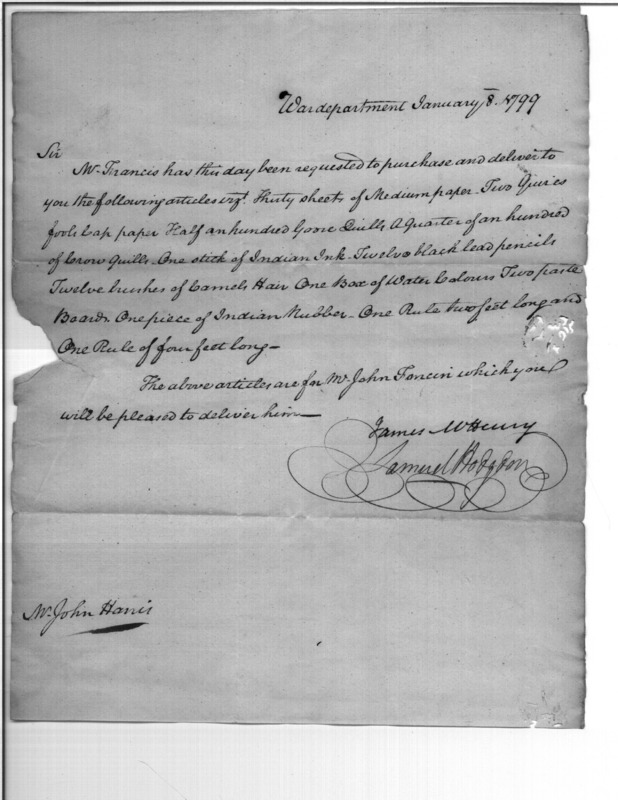 War department January 8. 1799
Sir
Mr. Francis has this day been requested to purchase and deliver to
you the following articles vizt. Thirty sheets of Medium paper. Two Quires
fools Cap paper Half an hundred Goose Quills A Quarter of an hundred
of Crow Quills One stick of Indian Ink. Twelve black lead pencils
Twelve brushes of Camels Hair One Box of Water Colours Two paste
Boards. One piece of Indian Rubber – One Rule two feet long and
One Rule of four feet long –
The above articles are for Mr. John Foncin which you
will be pleased to deliver him —
James McHenry
Samuel Hodgdon
Mr. John Harris